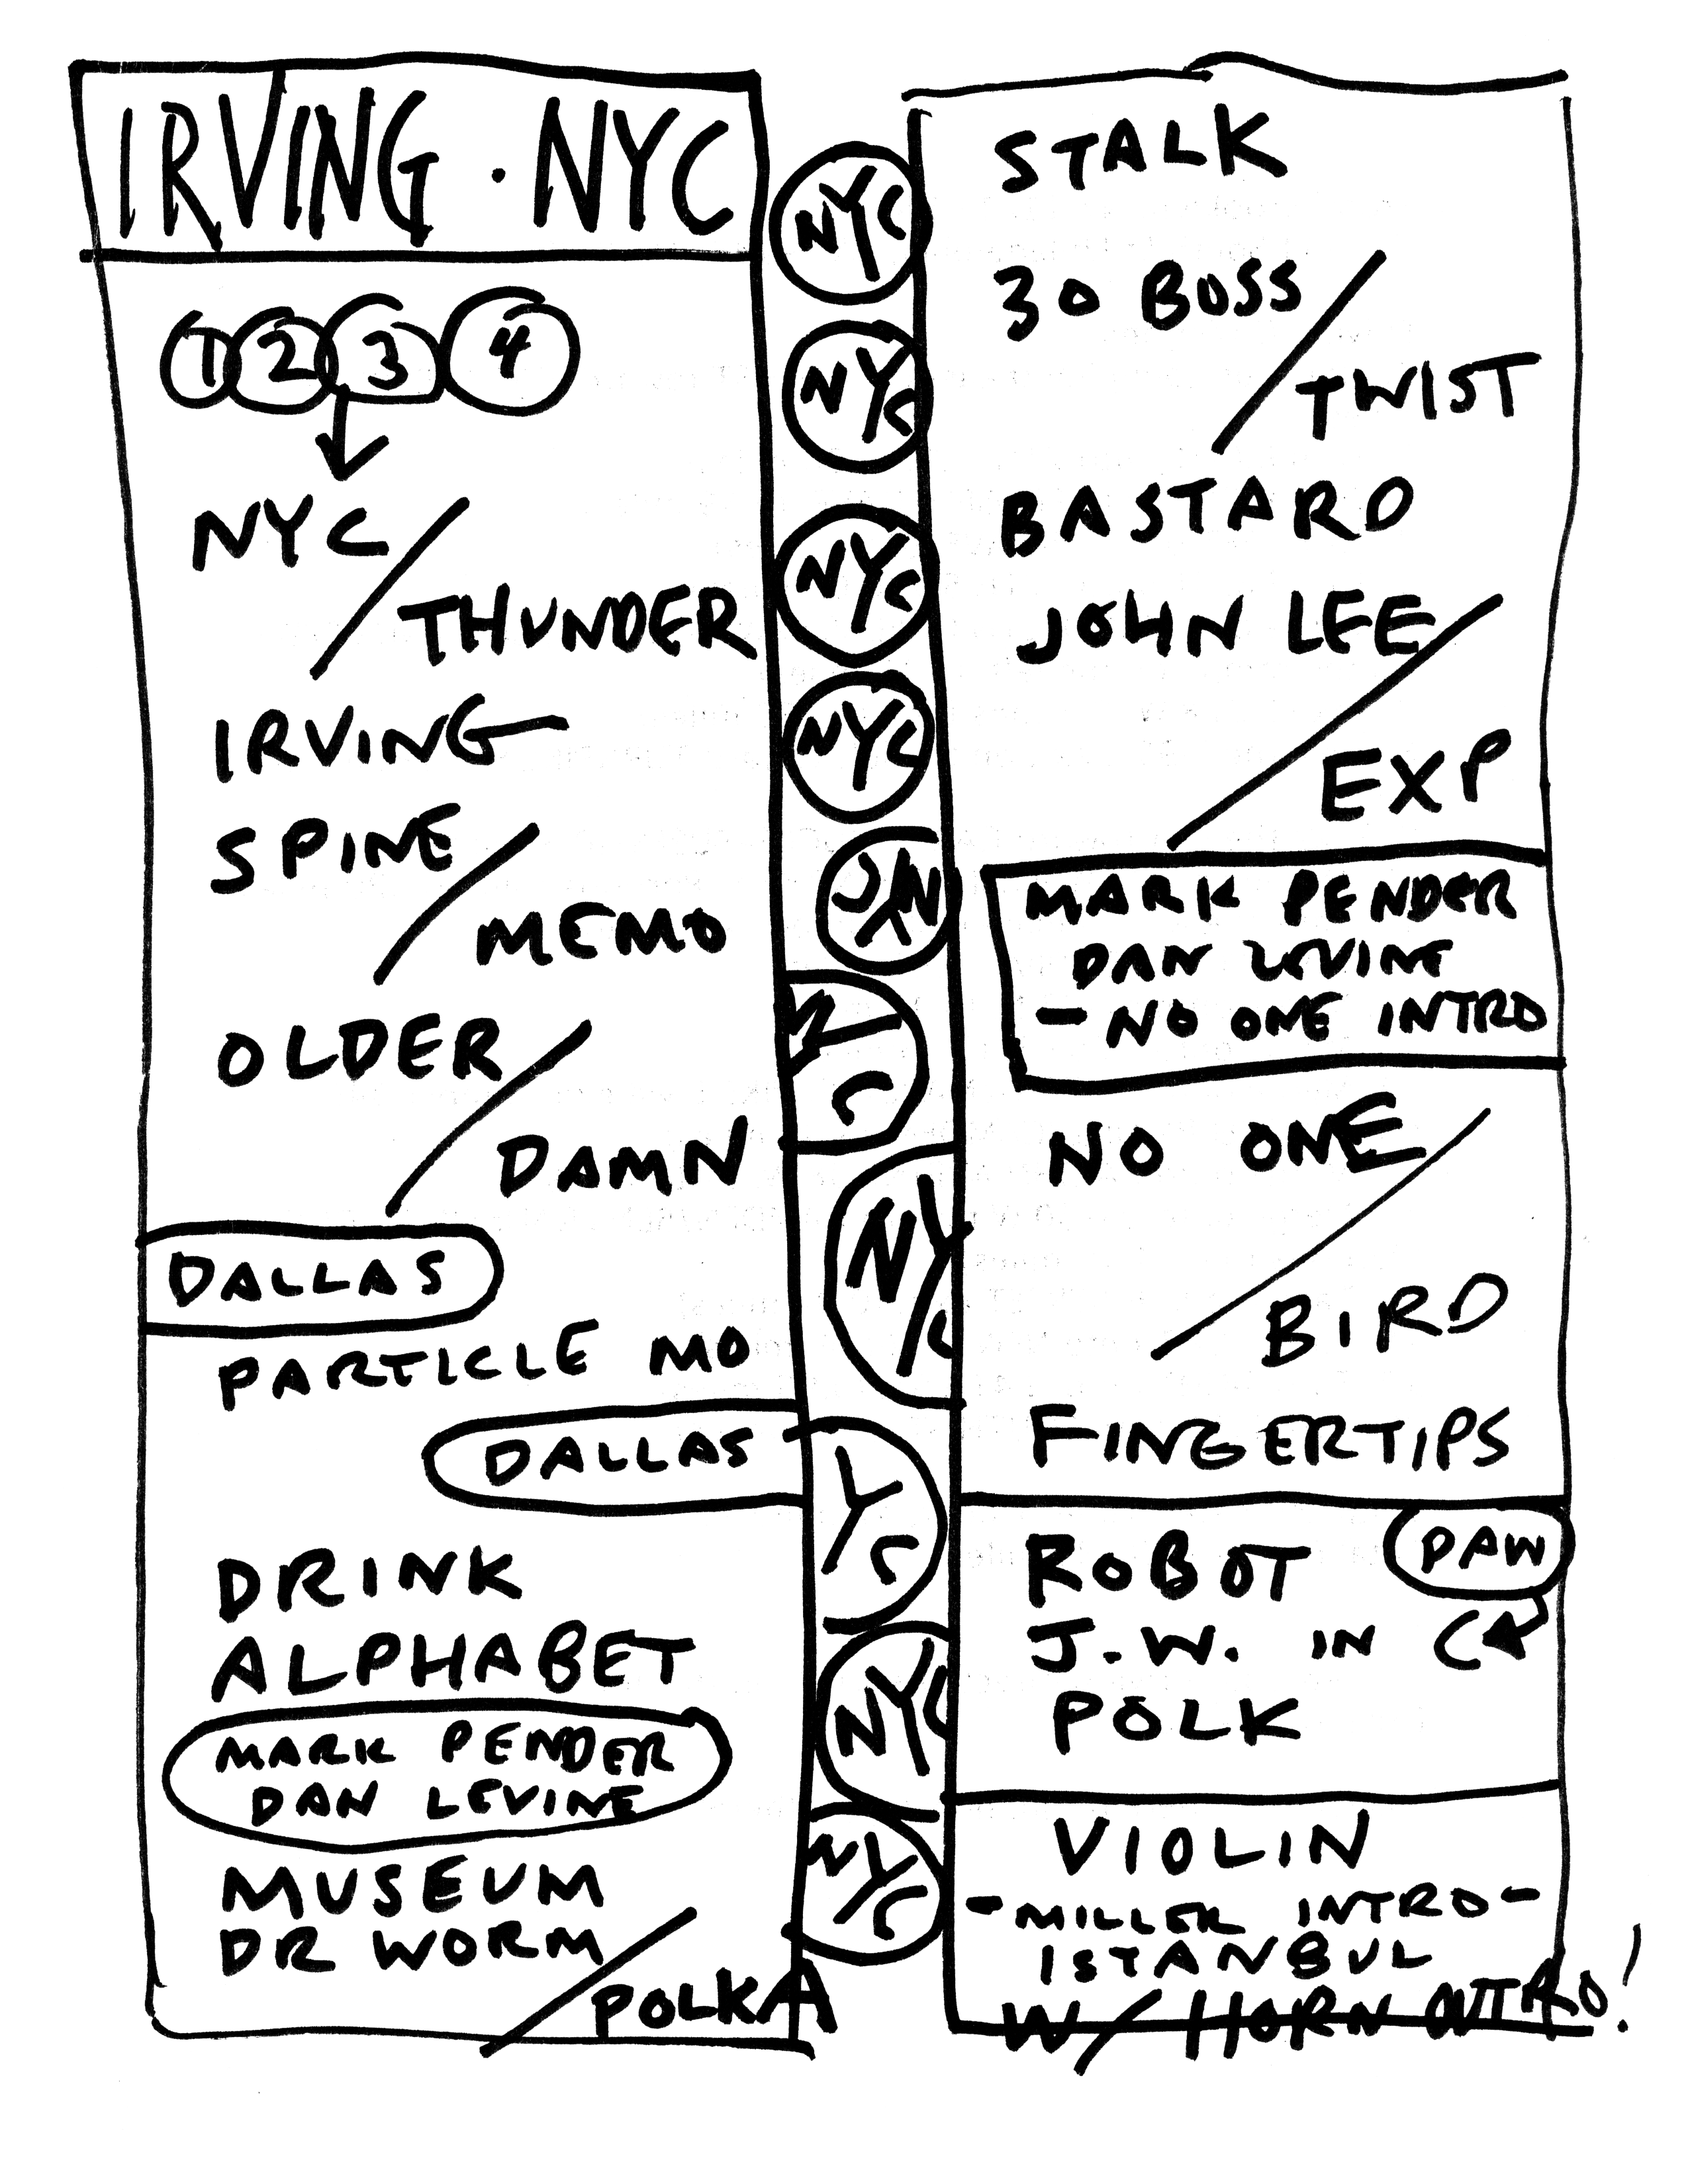 IRVING · NYC
1 2 3 4
NYC/
THUNDER
IRVING
SPINE/
MEMO
OLDER/
DAMN
DALLAS
PARTICLE MO
DALLAS
DRINK
ALPHABET
MARK PENDER
DAN LEVINE
MUSEUM
DR WORM/
POLKA
NYC
NYC
NYC
NYC
NYC
NYC
YC
NYC
NYC
STALK
30 BOSS/
TWIST
BASTARD
JOHN LEE/
EXP
MARK PENDER
DAN LEVINE
- NO ONE INTRO
NO ONE/
BIRD
FINGERTIPS
ROBOT PAW
J.W. IN C
POLK
VIOLIN
-MILLER INTRO-
ISTANBUL
W/ HORN OUTTRO!